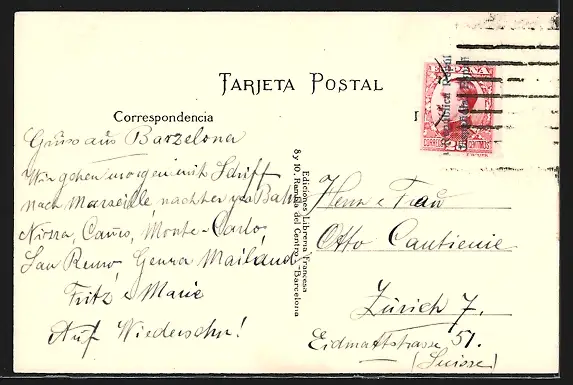 TARJETA POSTAL
Correspondencia
Gruss aus Barzelona
Wir gehen morgen mit Schiff
nach Marseille nachher per Bahn
Nizza, Canes, Monte-Carlo,
San Remo, Genua Mailand
Fritz & Marie
Auf Wiedersehn!
Ediciones Librería Francesa
8 y 10, Rambla del Centro - Barcelona
República Española
CORREOS 25 CÉNTIMOS
Herr & Frau
Otto Cautienie
Zürich 7.
Eidmattstrasse 51.
(Suisse)